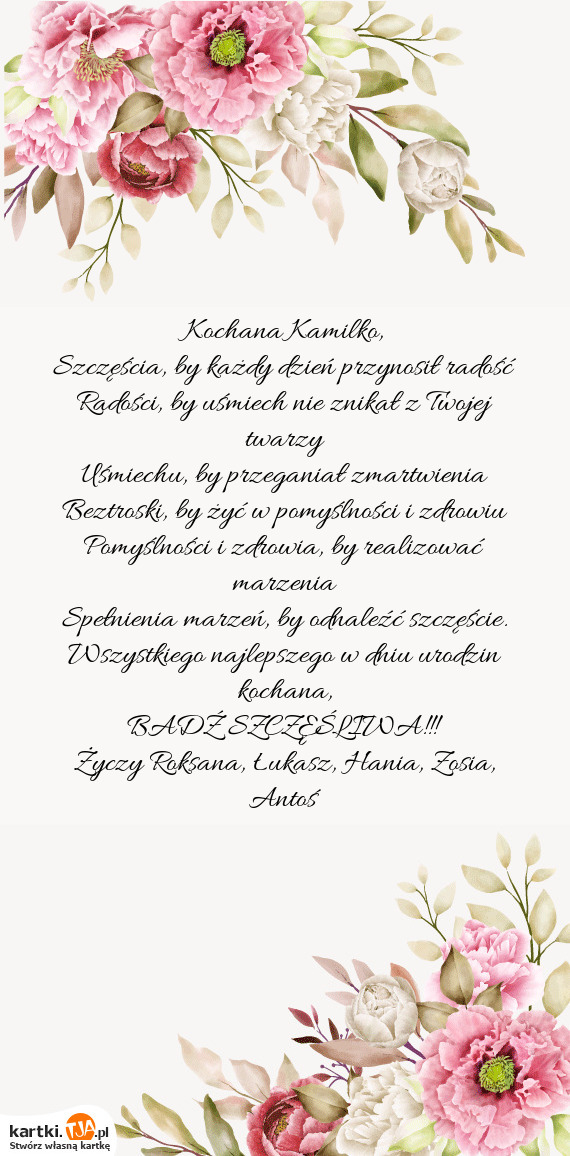 Kochana Kamilko,
Szczęścia, by każdy dzień przynosił radość
Radości, by uśmiech nie znikał z Twojej
twarzy
Uśmiechu, by przeganiał zmartwienia
Beztroski, by żyć w pomyślności i zdrowiu
Pomyślności i zdrowia, by realizować
marzenia
Spełnienia marzeń, by odnaleźć szczęście.
Wszystkiego najlepszego w dniu urodzin
kochana,
BĄDŹ SZCZĘŚLIWA!!!
Życzy Roksana, Łukasz, Hania, Zosia,
Antoś
kartki.TJA.pl
Stwórz własną kartkę